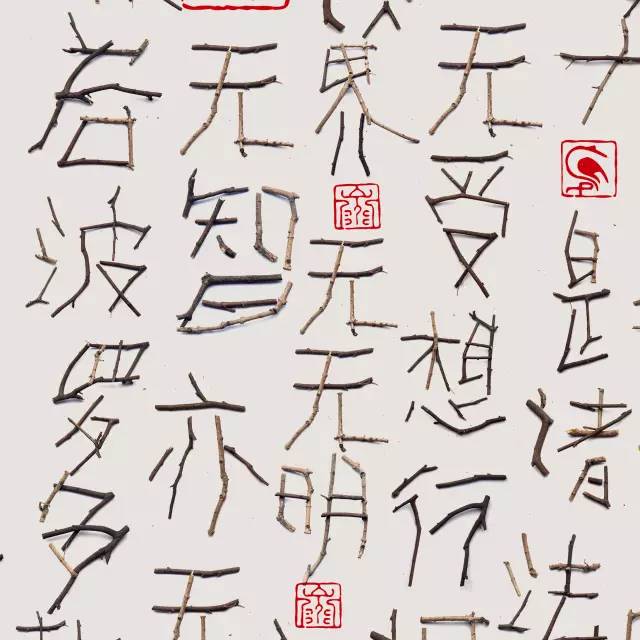 子是诸法
无受想行
界无无明
无智亦无
若波罗多